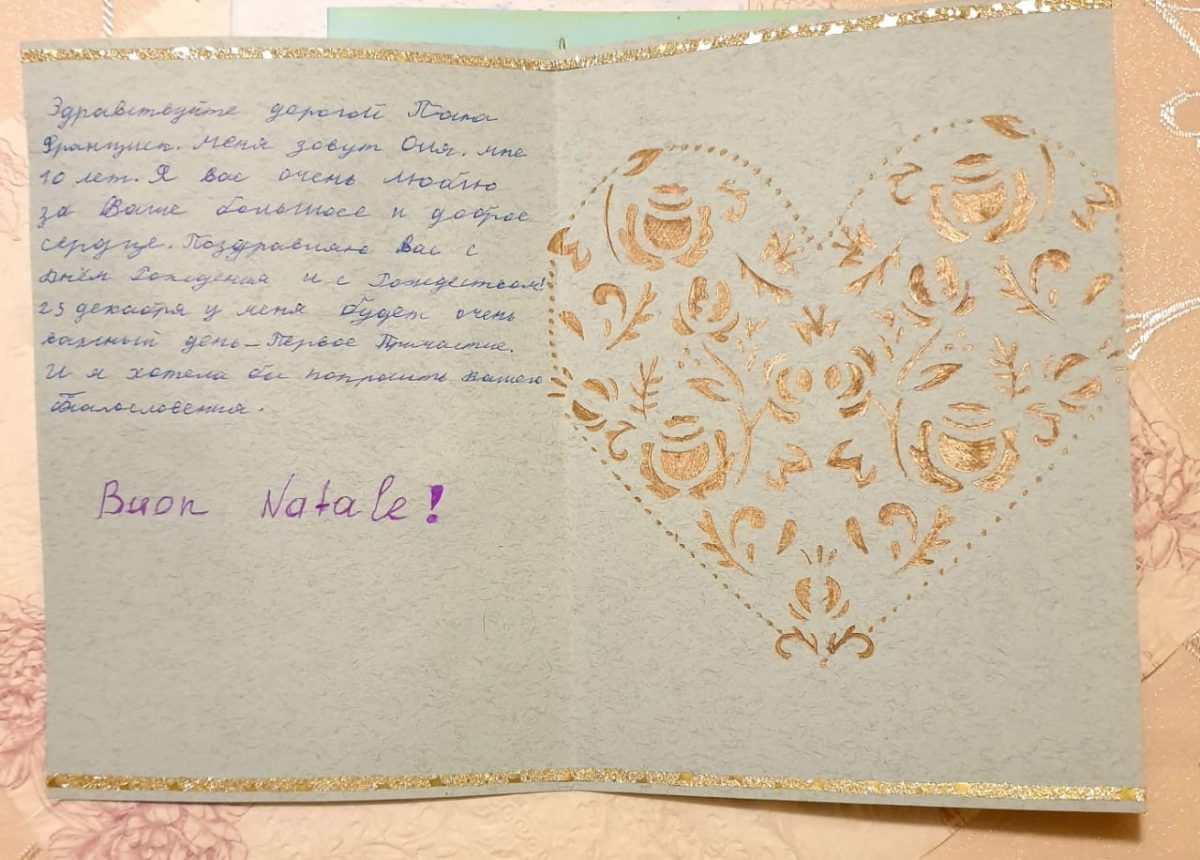 Здравствуйте дорогой Папа
Франциск. Меня зовут Оля. мне
10 лет. Я вас очень люблю
за Ваше большое и доброе
сердце. Поздравляю Вас с
Днём Рождения и с Рождеством!
23 декабря у меня будет очень
важный день – Первое Причастие.
И я хотела бы попросить вашего
благословения.
Buon Natale!